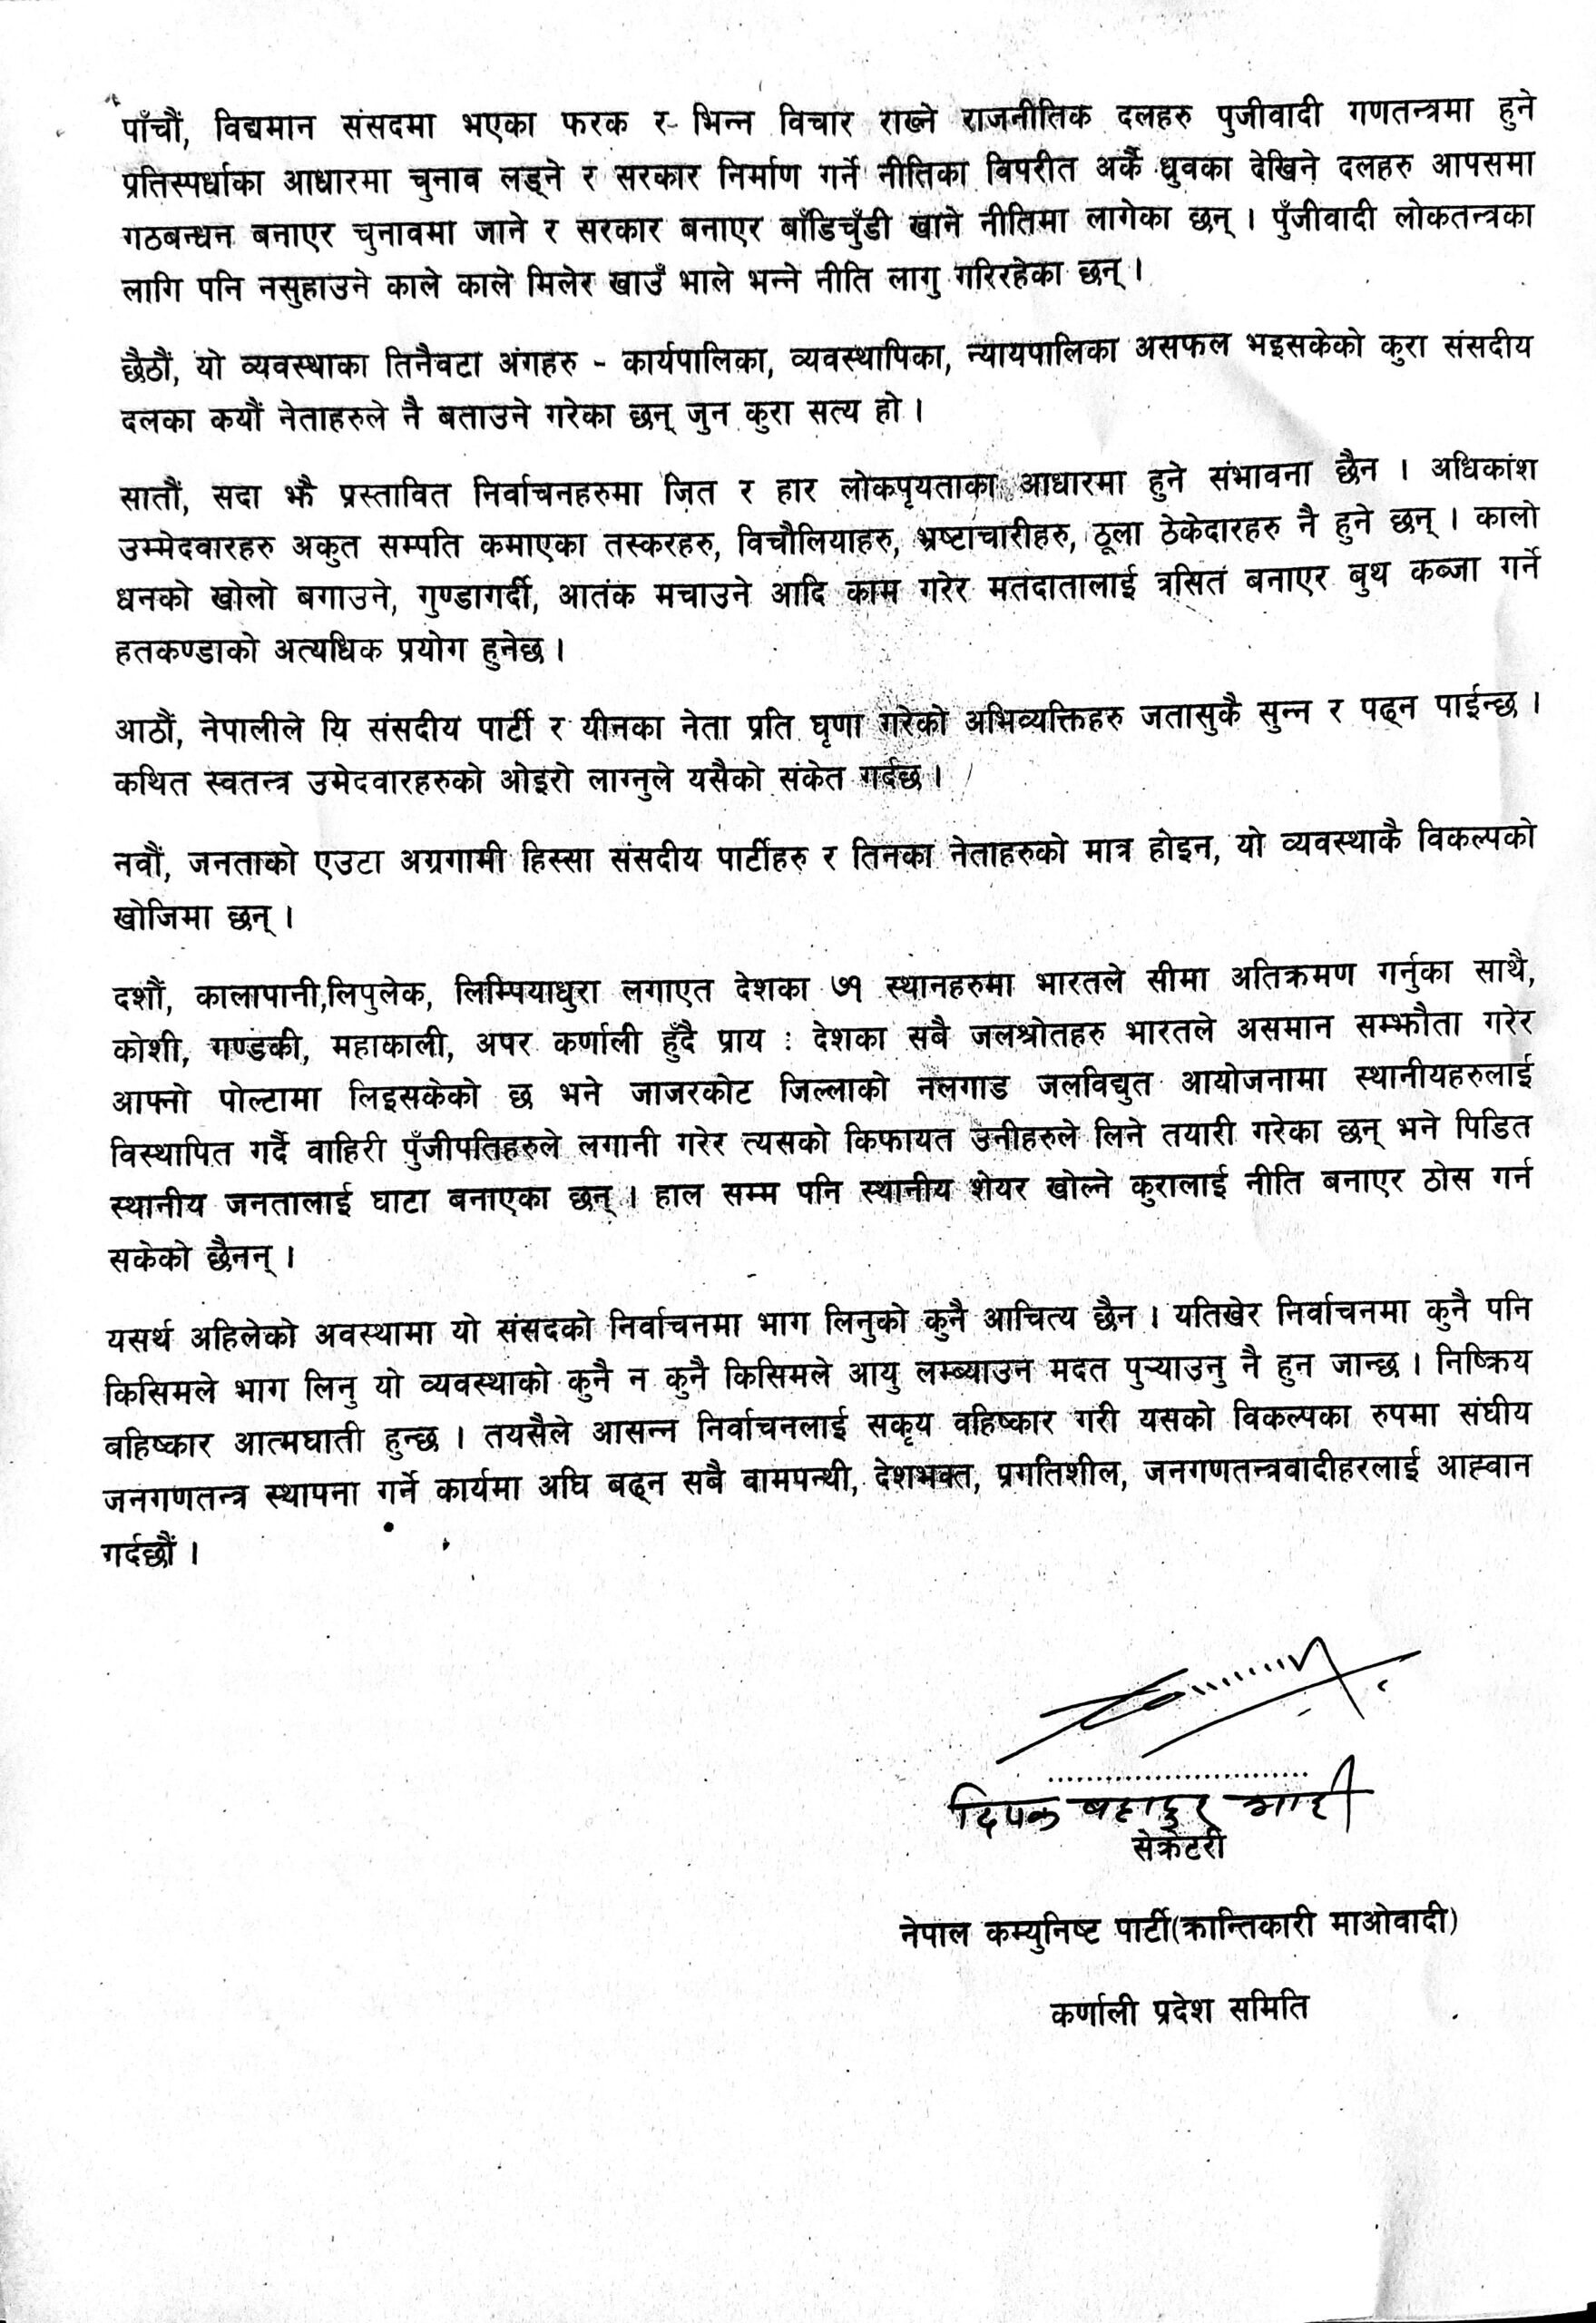 पाँचौं, विद्यमान संसदमा भएका फरक र भिन्न विचार राख्ने राजनीतिक दलहरु पुजीवादी गणतन्त्रमा हुने
प्रतिस्पर्धाका आधारमा चुनाव लड्ने र सरकार निर्माण गर्ने नीतिका विपरीत अर्कै ध्रुवका देखिने दलहरु आपसमा
गठबन्धन बनाएर चुनावमा जाने र सरकार बनाएर बाँडिचुँडी खाने नीतिमा लागेका छन् । पुँजीवादी लोकतन्त्रका
लागि पनि नसुहाउने काले काले मिलेर खाउँ भाले भन्ने नीति लागु गरिरहेका छन् ।
छैठौं, यो व्यवस्थाका तिनैवटा अंगहरु - कार्यपालिका, व्यवस्थापिका, न्यायपालिका असफल भइसकेको कुरा संसदीय
दलका कयौं नेताहरुले नै बताउने गरेका छन् जुन कुरा सत्य हो ।
सातौं, सदा झै प्रस्तावित निर्वाचनहरुमा जित र हार लोकपृयताका आधारमा हुने संभावना छैन । अधिकांश
उम्मेदवारहरु अकुत सम्पति कमाएका तस्करहरु, विचौलियाहरु, भ्रष्टाचारीहरु, ठूला ठेकेदारहरु नै हुने छन् । कालो
धनको खोलो बगाउने, गुण्डागर्दी, आतंक मचाउने आदि काम गरेर मतदातालाई त्रसित बनाएर बुथ कब्जा गर्ने
हतकण्डाको अत्यधिक प्रयोग हुनेछ ।
आठौं, नेपालीले यि संसदीय पार्टी र यीनका नेता प्रति घृणा गरेको अभिव्यक्तिहरु जतासुकै सुन्न र पढ्न पाईन्छ ।
कथित स्वतन्त्र उमेदवारहरुको ओइरो लाग्नुले यसैको संकेत गर्दछ ।
नवौं, जनताको एउटा अग्रगामी हिस्सा संसदीय पार्टीहरु र तिनका नेताहरुको मात्र होइन, यो व्यवस्थाकै विकल्पको
खोजिमा छन् ।
दशौं, कालापानी,लिपुलेक, लिम्पियाधुरा लगाएत देशका ७१ स्थानहरुमा भारतले सीमा अतिक्रमण गर्नुका साथै,
कोशी, गण्डकी, महाकाली, अपर कर्णाली हुँदै प्राय : देशका सबै जलश्रोतहरु भारतले असमान सम्झौता गरेर
आफ्नो पोल्टामा लिइसकेको छ भने जाजरकोट जिल्लाको नलगाड जलविद्युत आयोजनामा स्थानीयहरुलाई
विस्थापित गर्दै वाहिरी पुँजीपतिहरुले लगानी गरेर त्यसको किफायत उनीहरुले लिने तयारी गरेका छन् भने पिडित
स्थानीय जनतालाई घाटा बनाएका छन् । हाल सम्म पनि स्थानीय शेयर खोल्ने कुरालाई नीति बनाएर ठोस गर्न
सकेको छैनन् ।
यसर्थ अहिलेको अवस्थामा यो संसदको निर्वाचनमा भाग लिनुको कुनै आचित्य छैन । यतिखेर निर्वाचनमा कुनै पनि
किसिमले भाग लिनु यो व्यवस्थाको कुनै न कुनै किसिमले आयु लम्ब्याउन मदत पुऱ्याउनु नै हुन जान्छ । निष्क्रिय
बहिष्कार आत्मघाती हुन्छ । तयसैले आसन्न निर्वाचनलाई सकृय वहिष्कार गरी यसको विकल्पका रुपमा संघीय
जनगणतन्त्र स्थापना गर्ने कार्यमा अघि बढ्न सबै वामपन्थी, देशभक्त, प्रगतिशील, जनगणतन्त्रवादीहरलाई आह्वान
गर्दछौं ।
दिपक बहादुर
सेक्रेटरी
नेपाल कम्युनिष्ट पार्टी(क्रान्तिकारी माओवादी)
कर्णाली प्रदेश समिति